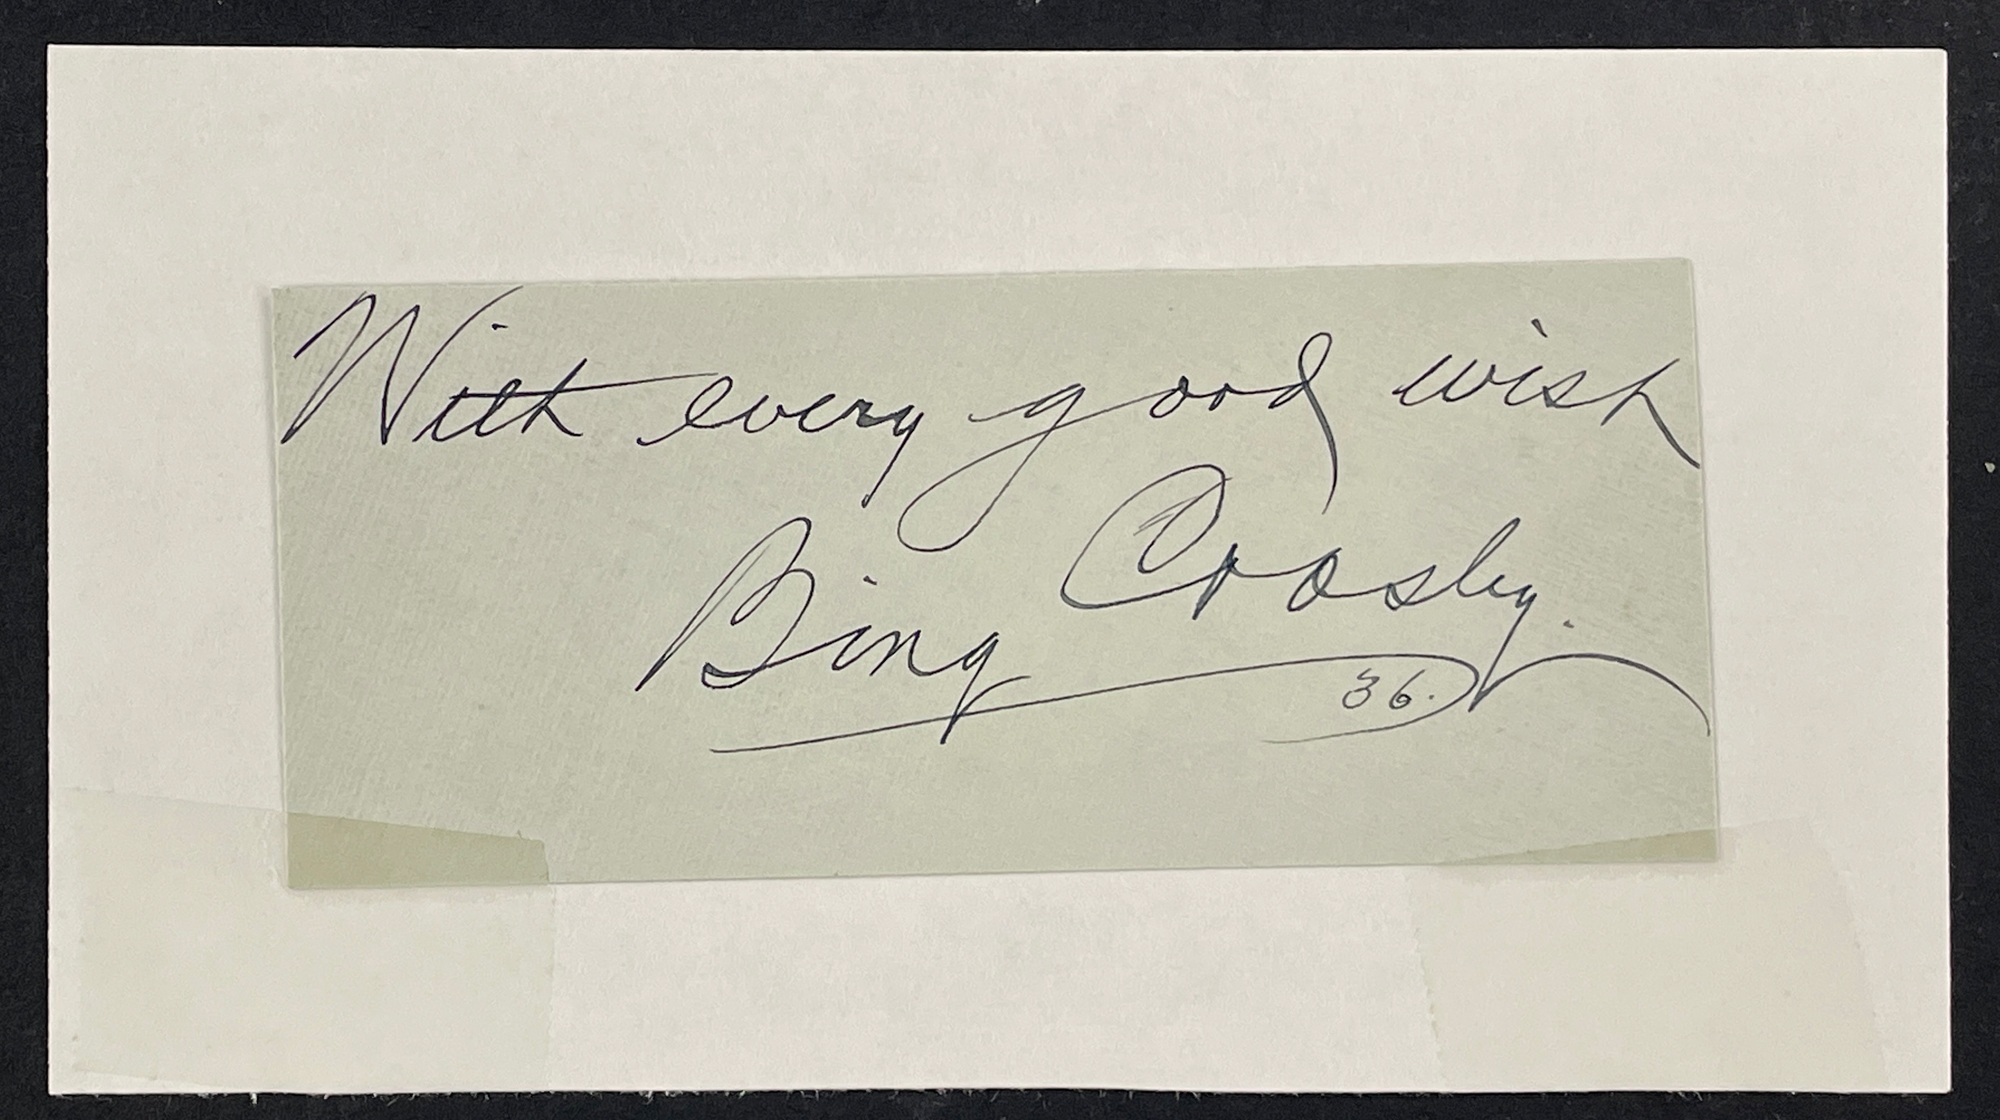 With every good wish
Bing Crosby.
36.